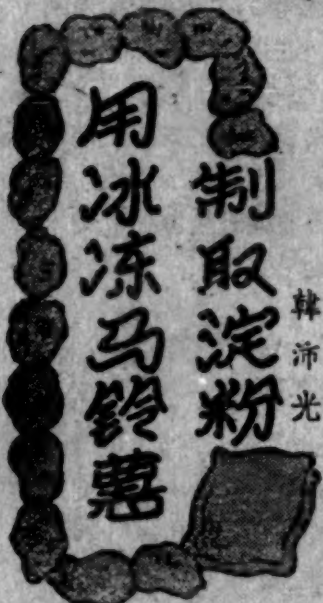 用冰冻马铃薯
制取淀粉
韓沛光